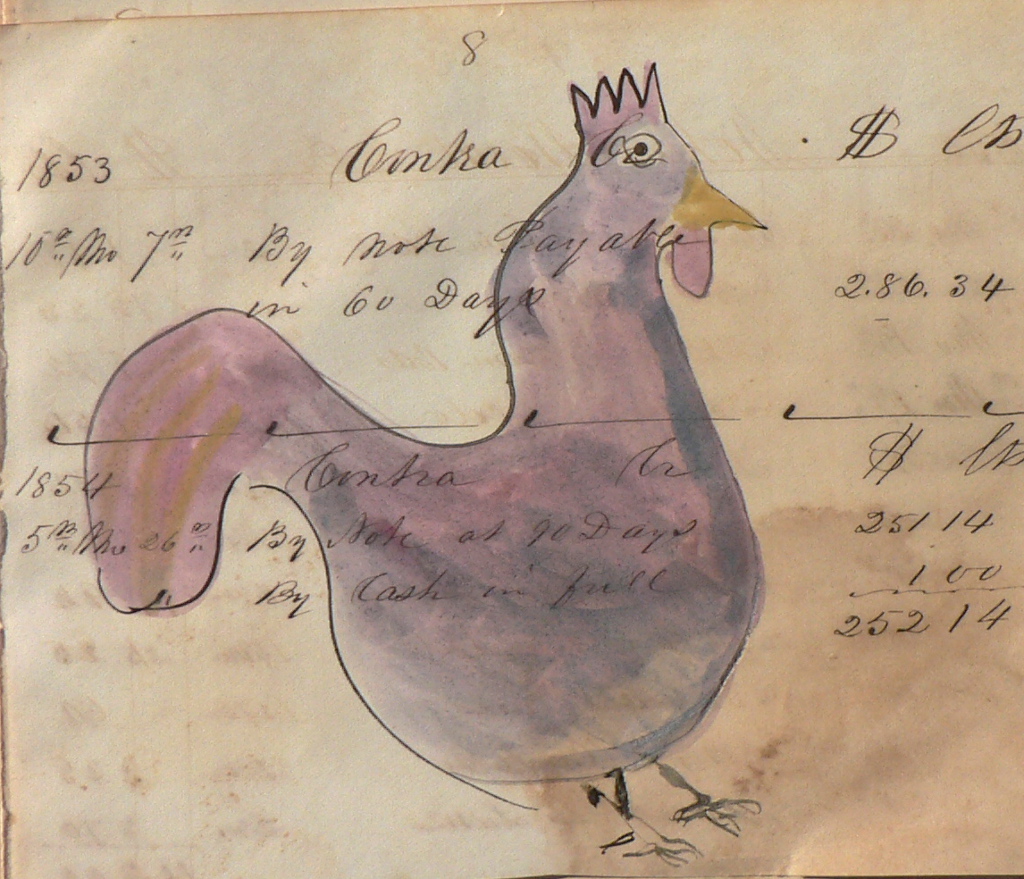 8
1853 Contra Cr $ Cts
10th Mo 7th By Note Payable
in 60 Days 2.86.34
1854 Contra Cr $ Cts
5th Mo 26th By Note at 90 Days 251 14
By Cash in full 1 00
252 14